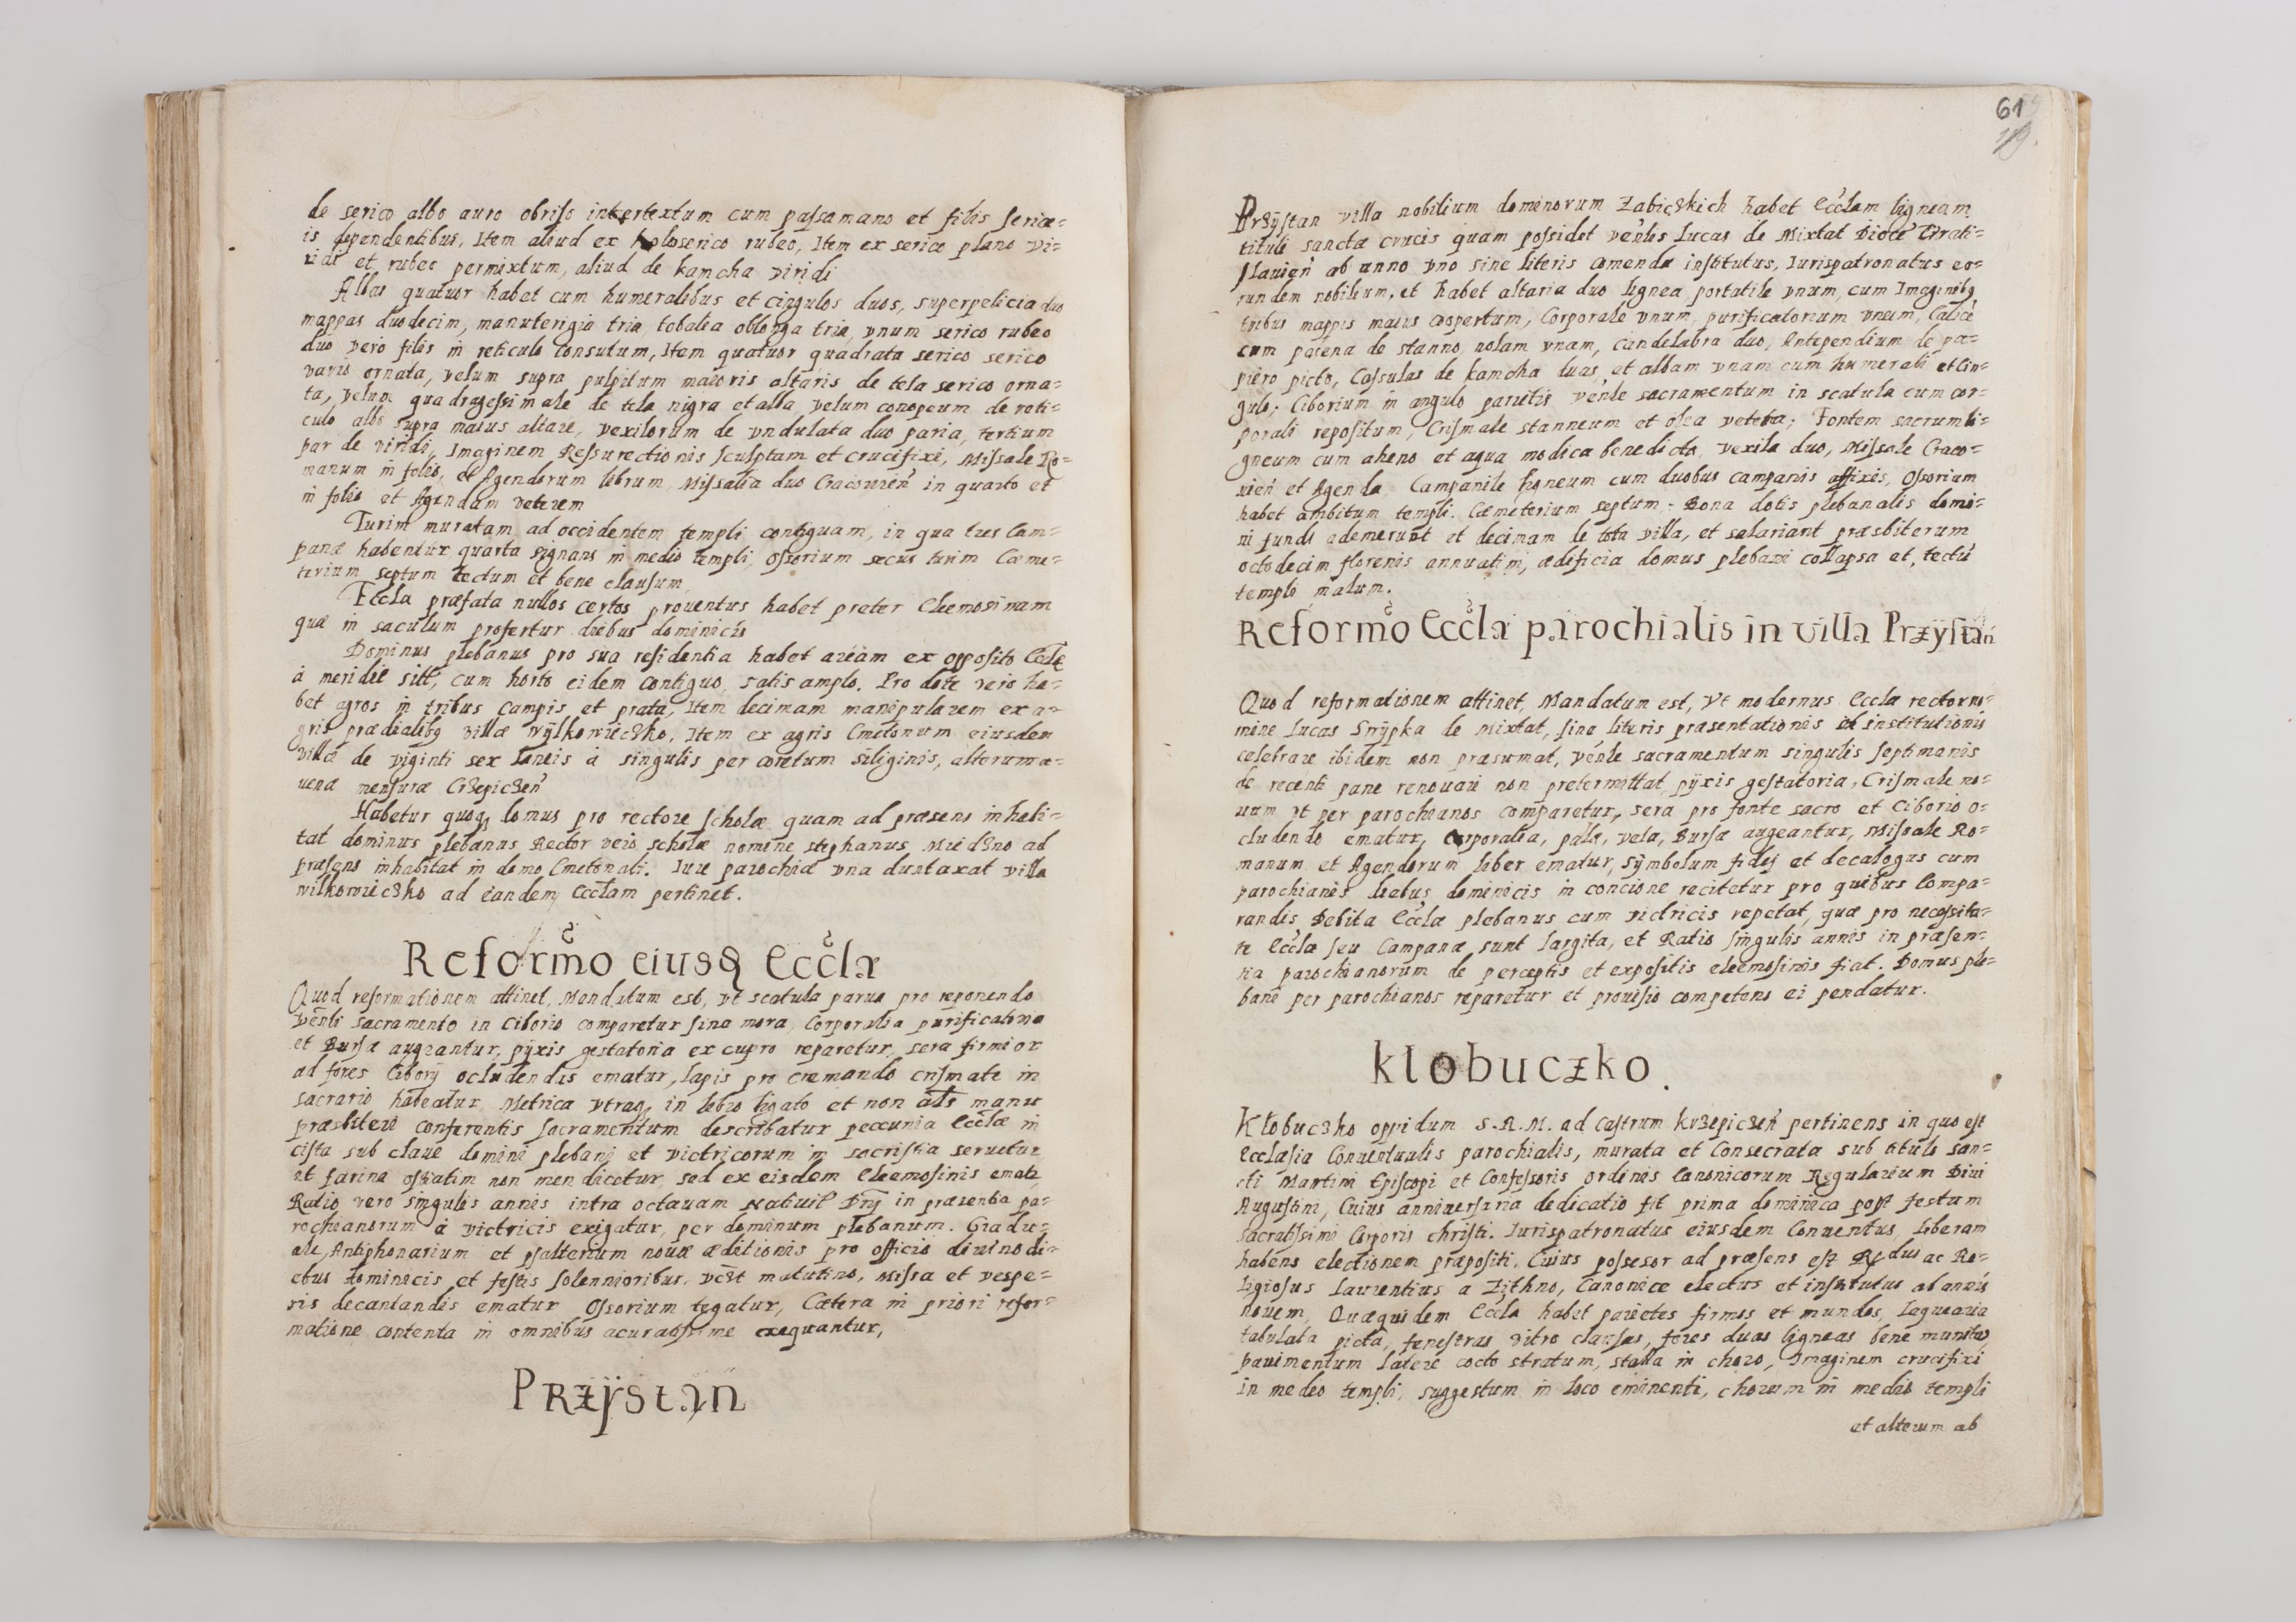 de serico albo auro obriso intertextum cum passamano et filis serice=
is dependentibus, Item aliud ex holoserico rubeo, Item ex serico plano vi=
et rubeo permixtum, aliud de kamcha viridi
Albas quatuor habet cum humeralibus et cingulos duos, superpelicia duo
mappas duodecim, manuterigia tria, tobalia oblonga tria, vnum serico rubeo
duo vero filis in reticulo consutum, Item quatuor quadrata serico serico
vario ornata, velum supra pulpitum maioris altaris de tela serico orna=
ta, velum quadragessimale de tela nigra et alba, velum conopeum de reti=
culo albo supra maius altare, vexilorum de vndulata duo paria, tertium
par de viridi, Imaginem Ressurectionis sculptam et crucifixi, Missale Ro=
manum in folio, et Agendorum librum, Missalia duo Cracovień in quarto et
in folio et Agendam veterem
Turim muratam ad occidentem templi contiguam, in qua tres Cam=
panæ habentur quarta signans in medio templi, Ossorium secus turim Cæme=
terium septum tectum et bene clausum
Eccla præfata nullos certos prouentus habet preter Eleemosinam
quæ in saculum profertur diebus dominicis
Dominus plebanus pro sua residentia habet aream ex opposito Eccle
á meridie sitt, cum horto eidem contiguo, satis amplo. Pro dote vero ha=
bet agros in tribus campis et prata, Item decimam manipularem ex a=
gris prædialibq villæ wÿlkowieczko, Item ex agris Cmetonum eiusdem
villæ de viginti sex laneis á singulis per coretum siliginis, alterum a=
uenæ mensuræ Crzepiczeń
Habetur quoq domus pro rectore scholæ quam ad præsens inhabi=
tat dominus plebanus Rector vero scholæ nomine stephanus Miedzno ad
præsens inhabitat in domo Cmetonali. Iure parochiæ vna duntaxat villa
wilkowieczko ad eandem Ecclam pertinet.
Reformo eiusd Eccla
Quod reformationem attinet, Mandatum est, vt scatula parua pro reponendo
venli sacramento in Ciborio comparetur sine mora, Corporalia purificatoria
et Bursæ augeantur, pÿxis gestatoria ex cupro reparetur, sera firmior
ad fores Ciborÿ ocludendas ematur, lapis pro cremando crismate in
sacrario habeatur, Metrica vtraq in libro ligato et non als manu
præsbiteri conferentis sacramentum describatur peccunia Ecclæ in
cista sub claue domini plebani et victricorum in sacristia seruetur
et farina ostiatim non mendicetur, sed ex eisdem Eleemosinis ematr
Ratio vero singulis annis intra octauam Natiuit Dnj in præsentia pa=
rochianorum á victricis exigatur, per dominum plebanum. Gradu=
ale, Antiphonarium et psalterium nouæ æditionis pro officio diuino di=
ebus dominicis et festis solennioribus, vcst matutino, Missa et vespe=
ris decantandis ematur, Ossorium tegatur, Cætera in priori refor=
matione contenta in omnibus acuratissime exequantur,
Przÿstan
61
Przÿstan villa nobilium dominorum Zabiczkich habet Ecclam ligneam
tituli sanctæ crucis quam possidet venlis Lucas de Mixtat Dioce Wrati=
slauień ab anno vno sine literis Comenda institutus, Iurispatronatus eo=
rundem nobilium, et habet altaria duo lignea portatile vnum, cum Imaginibq
tribus mappis maius coopertum, Corporale vnum, purificatorium vnum, Calice
cum patena de stanno, nolam vnam, candelabra duo, Antependium de pa=
piro picto, Casulas de kamcha duas, et albam vnam cum humerali et Cin=
gulo; Ciborium in angulo parietis venle sacramentum in scatula cum cor=
porali repositum, Crismale stanneum et olea vetera; Fontem sacrum li=
gneum cum aheno et aqua modica benedicta, vexila duo, Missale Craco=
vień et Agenda, Campanile ligneum cum duobus campanis affixis, Ossorium
habet ambitum templi. Cæmeterium septum. Bona dotis plebanalis domi=
ni fundi ademerunt et decimam de tota villa, et salariant præsbiterum
octodecim florenis annuatim, ædificia domus plebani collapsa et tectū
templi malum.
Reformo Eccla parochialis in villa Przÿstań
Quod reformationem attinet, Mandatum est, vt modernus Eccla rector no=
mine Lucas Snÿpka de Mixtat, sine literis præsentationis et institutionis
celebrare ibidem non præsumat, venle sacramentum singulis septimanis
de recenti pane renouari non pretermittat, pÿxis gestatoria, Crismale no=
uum vt per parochianos comparetur, sera pro fonte sacro et Ciborio o=
cludendo ematur, Corporalia, palle, vela, Bursæ augeantur, Missale Ro=
manum et Agendorum liber ematur, sÿmbolum fidej et decalogus cum
parochianis diebus dominicis in concione recitetur pro quibus Compa=
randis Debita Ecclæ plebanus cum victricis repetat, quæ pro necessita=
te Ecclæ seu Campanæ, sunt largita, et Ratio singulis annis in præsen=
tia parochianorum de perceptis et expositis eleemosinis fiat. Domus ple=
bani per parochianos reparetur et prouisio competens ei pendatur.
Klobuczko.
Klobuczko oppidum S.R.M. ad Castrum krzepiczeń pertinens in quo est
Ecclæsia Conuentualis parochialis, murata et Consecrata sub titulo san=
cti Martini Episcopi et Confessoris ordinis Canonicorum Regularium Diui
Augustini, Cuius anniuersaria dedicatio fit prima dominica post festum
sacratissimi Corporis christi. Iurispatronatus eiusdem Conuentus, liberam
habens electionem præpositi, Cuius possesor ad præsens est Rdus ac Re=
ligiosus Laurentius a Zithno, Canonice electus et institutus ab annis
nouem, Quæquidem Eccla habet parietes firmos et mundos, laquearia
tabulata picta, fenestras vitro clausas, fores duas ligneas bene munitas
pauimentum latere cocto stratum, stalla in choro, Imaginem crucifixi
in medeo templi, suggestum in loco eminenti, chorum in medio templi
et alterum ab